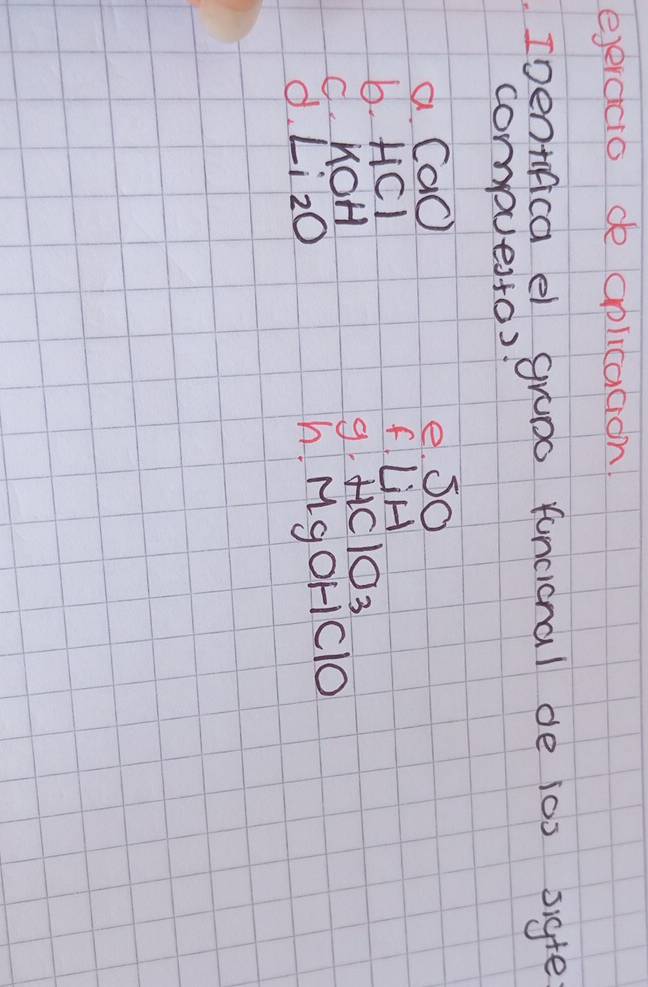 ejercicio de aplicación.
. IDentifica el grupo funcional de los sigte:
compuestos.
a. CaO
b. HCl
c. KOH
d. Li2O
e. SO
f. LiH
g. HClO3
h. MgOHClO